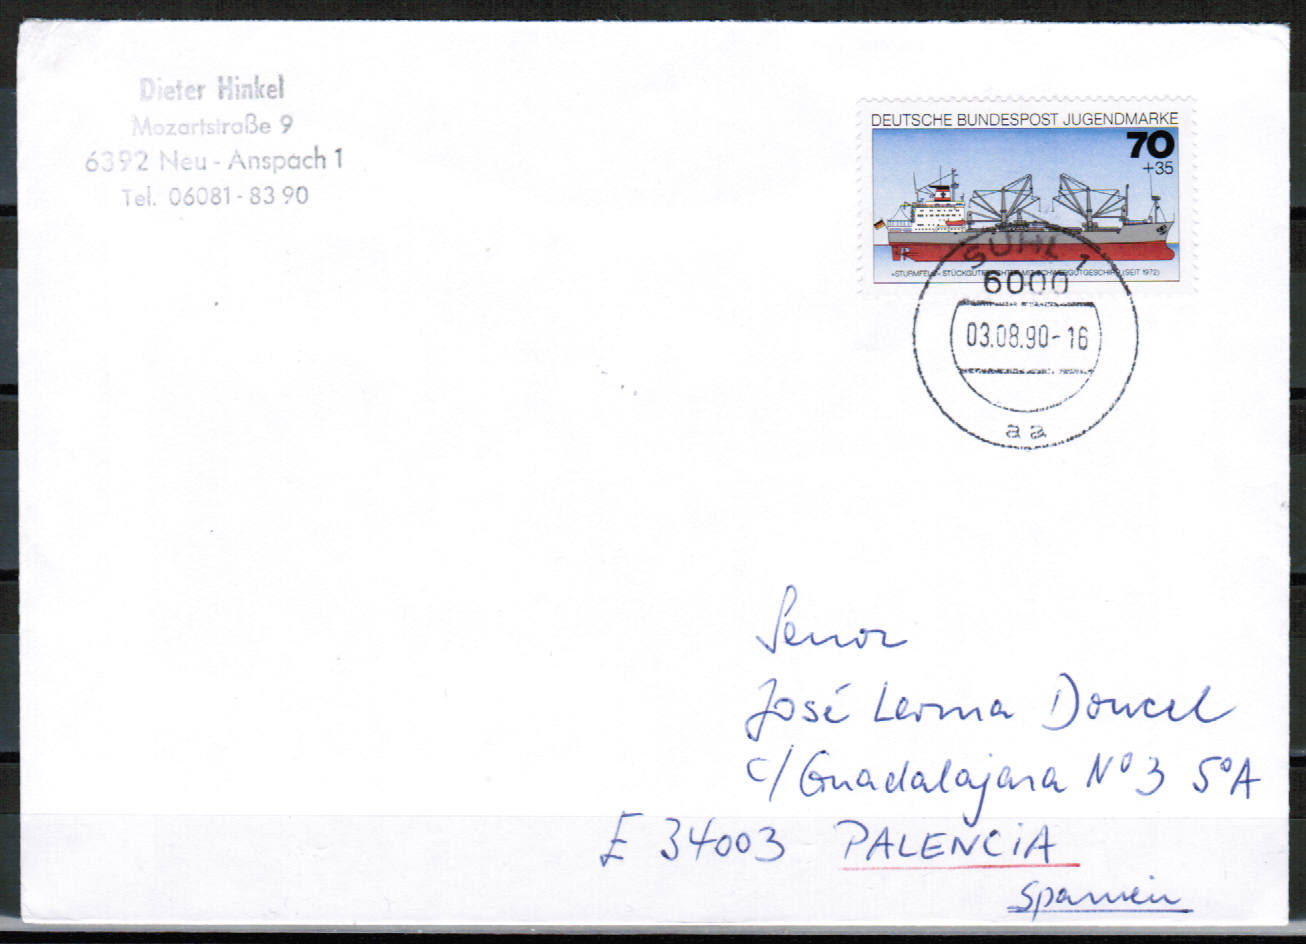 Dieter Hinkel
Mozartstraße 9
6392 Neu - Anspach 1
Tel. 06081 - 83 90
DEUTSCHE BUNDESPOST JUGENDMARKE
70
+35
»STURMFELS« STÜCKGUTFRACHTER MIT SCHWERGUTGESCHIRR (SEIT 1972)
SUHL 1
6000
03.08.90-16
aa
Senor
José Lerma Doncel
c/ Guadalajara Nº 3 5º A
E 34003 PALENCIA
Spanien